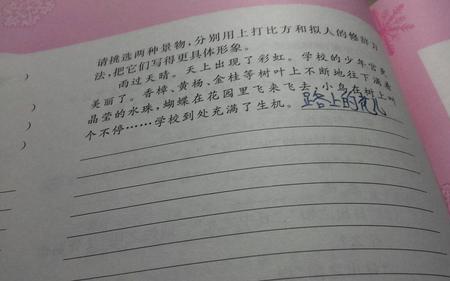 请挑选两种景物，分别用上打比方和拟人的修辞方
法，把它们写得更具体形象。
雨过天晴。天上出现了彩虹。学校的少年宫更
美丽了。香樟、黄杨、金桂等树叶上不断地往下滴着
晶莹的水珠，蝴蝶在花园里飞来飞去，小鸟在树上叫
个不停……学校到处充满了生机。路上的花儿
）
）
）